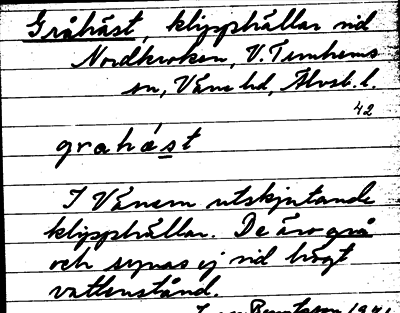 Gråhäst, klipphällar vid
Nordkroken, V. Tunhems
sn, Väne hd, Älvsb. l.
42
grahä́st
I Vänern utskjutande
klipphällar. De äro grå
och synas ej vid högt
vattenstånd.